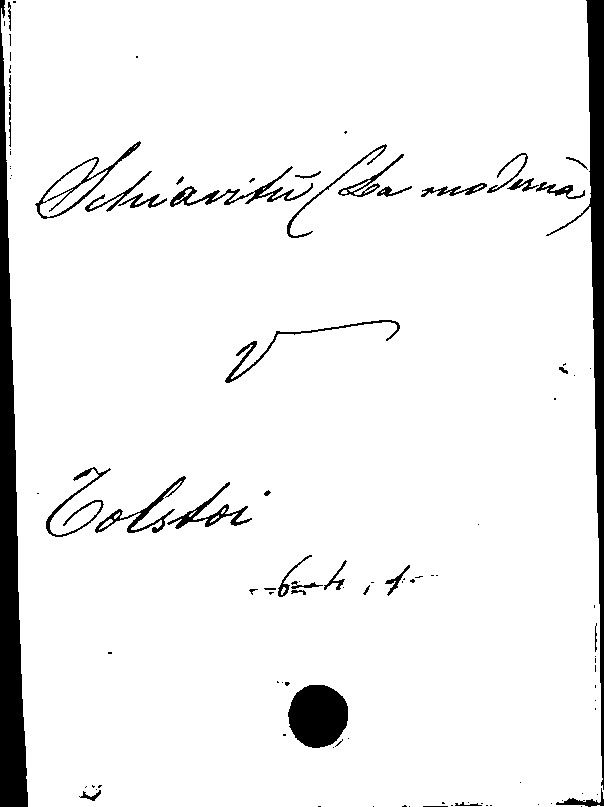 Schiavitù (La moderna)
V
Tolstoi